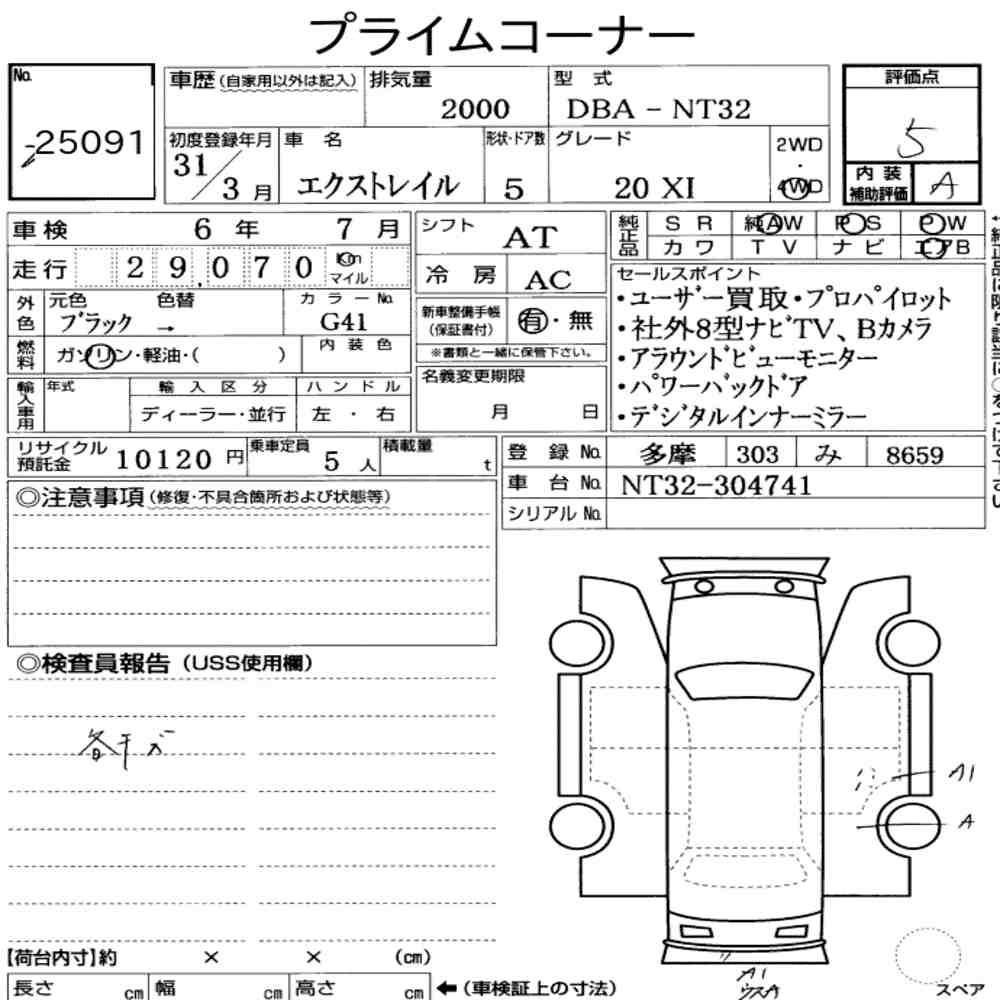 プライムコーナー
No.
25091
車歴(自家用以外は記入)
排気量
2000
型 式
DBA - NT32
評価点
5
初度登録年月
31/3月
車 名
エクストレイル
形状・ドア数
5
グレード
20 XI
2WD
・
4WD
内装
補助評価
A
車検 6年 7月
シフト AT
純正品
SR 純AW PS PW
カワ TV ナビ エアB
走行 29,070 Km マイル
冷房 AC
セールスポイント
・ユーザー買取・プロパイロット
・社外8型ナビTV、Bカメラ
・アラウンドビューモニター
・パワーバックドア
・デジタルインナーミラー
外色
元色 色替
ブラック →
カラーNo.
G41
新車整備手帳
(保証書付)
有・無
※書類と一緒に保管下さい。
燃料
ガソリン・軽油・( )
内装色
名義変更期限
月 日
輸入車用
年式
輸入区分
ディーラー・並行
ハンドル
左・右
リサイクル
預託金
10120円
乗車定員
5人
積載量
t
登録No. 多摩 303 み 8659
車台No. NT32-304741
シリアルNo.
◎注意事項(修復・不具合箇所および状態等)
◎検査員報告(USS使用欄)
各キズ
A1
A
【荷台内寸】約 × × (cm)
長さ cm 幅 cm 高さ cm ←(車検証上の寸法)
A1
スペア